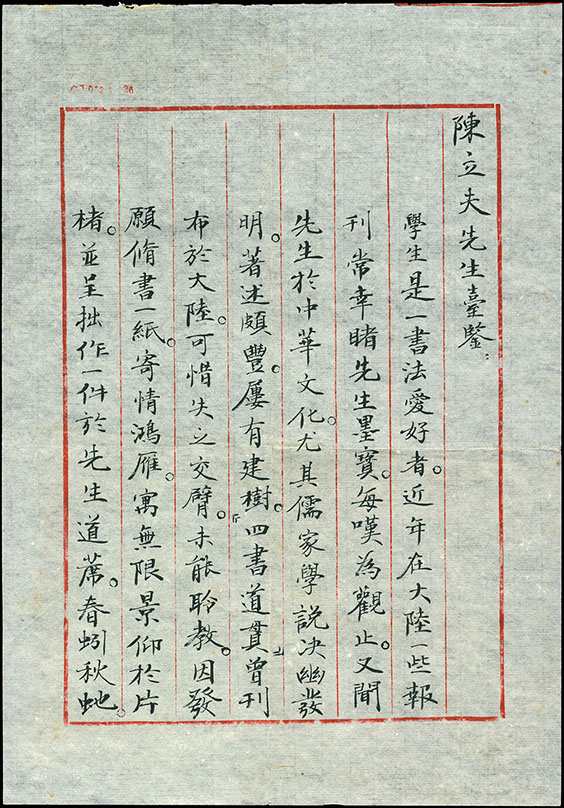 陳立夫先生臺鑒：
學生是一書法愛好者。近年在大陸一些報
刊常幸睹先生墨寶。每嘆為觀止。又聞
先生於中華文化。尤其儒家學說决幽發
明。著述頗豐。屢有建樹。『四書道貫』曾刊
布於大陸。可惜失之交臂。未能聆教。因發
願脩書一紙。寄情鴻雁。寓無限景仰於片
楮。並呈拙作一件於先生道蓆。春蚓秋虵。